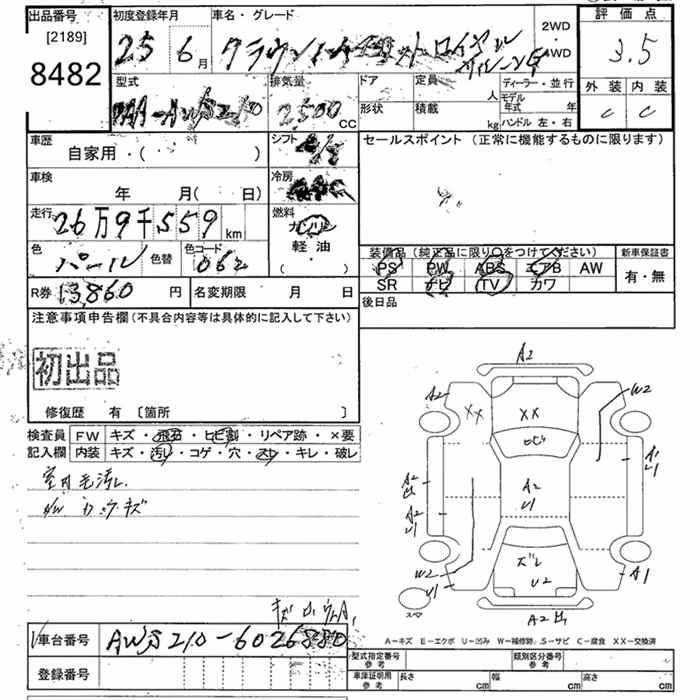 出品番号
[2189]
8482
初度登録年月
25 6月
車名・グレード
クラウン
2WD
・
4WD
評価点
3.5
外装 内装
C C
型式
排気量
2500
CC
ドア
形状
定員
人
積載
kg
ディーラー・並行
モデル
年式 年
ハンドル 左・右
車歴
自家用・( )
シフト
車検
年 月( 日)
冷房
走行
26万9千559km
燃料
ガソリン
軽油
・
( )
色
パール
色替
色コード
062
R券
13,860円
名変期限 月 日
セールスポイント (正常に機能するものに限ります)
装備品 (純正品に限り○をつけてください)
PS PW ABS エアB AW
SR ナビ TV カワ
新車保証書
有・無
後日品
注意事項申告欄(不具合内容等は具体的に記入して下さい)
初出品
修復歴 有 [箇所 ]
検査員
記入欄
FW キズ・飛石・ヒビ割・リペア跡・×要
内装 キズ・汚レ・コゲ・穴・スレ・キレ・破レ
室内毛汚レ
A2
A2
XX
XX
W2
ヒビ
A1
U1
A2
A2
U1
A2
U1
W2
U1
ズレ
U2
A1
A2
A-キズ E-エクボ U-凹み W-補修跡 S-サビ C-腐食 XX-交換済
車台番号
AWS210-6026880
登録番号
型式指定番号
参考
類別区分番号
参考
車庫証明用
参考
長さ cm
幅 cm
高さ cm